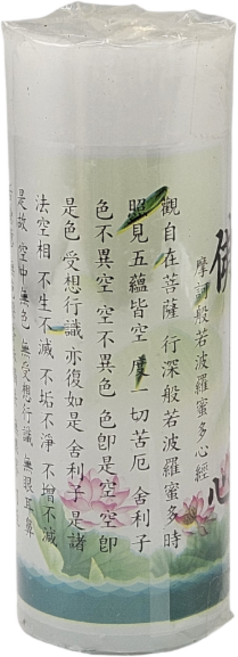 佛
心
摩訶般若波羅蜜多心經
觀自在菩薩 行深般若波羅蜜多時
照見五蘊皆空 度一切苦厄 舍利子
色不異空 空不異色 色卽是空 空卽
是色 受想行識 亦復如是 舍利子 是諸
法空相 不生不滅 不垢不淨 不增不減
是故 空中無色 無受想行識 無眼耳鼻